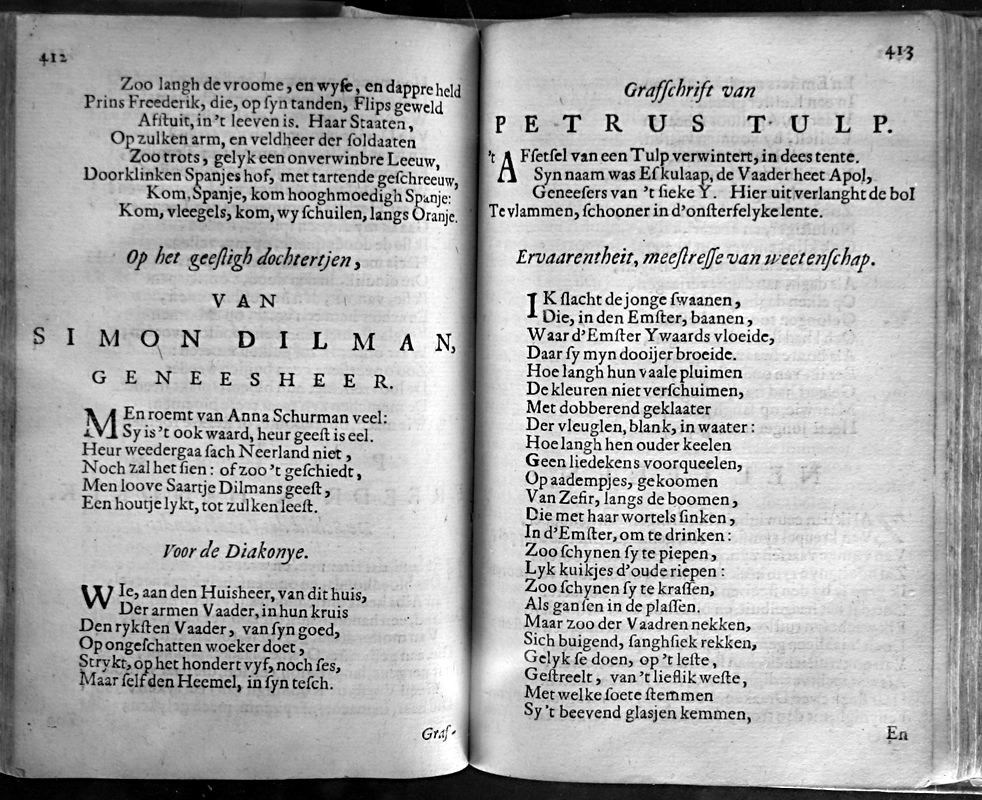 412
Zoo langh de vroome, en wyſe, en dappre held
Prins Freederik, die, op ſyn tanden, Flips geweld
Afſtuit, in 't leeven is. Haar Staaten,
Op zulken arm, en veldheer der ſoldaaten
Zoo trots, gelyk een onverwinbre Leeuw,
Doorklinken Spanjes hof, met tartende geſchreeuw,
Kom, Spanje, kom hooghmoedigh Spanje:
Kom, vleegels, kom, wy ſchuilen, langs Oranje.
Op het geeſtigh dochtertjen,
VAN
SIMON DILMAN,
GENEESHEER.
MEn roemt van Anna Schurman veel:
Sy is 't ook waard, heur geeſt is eel.
Heur weedergaa ſach Neerland niet,
Noch zal het ſien: of zoo 't geſchiedt,
Men loove Saartje Dilmans geeſt,
Een houtje lykt, tot zulken leeſt.
Voor de Diakonye.
WIe, aan den Huisheer, van dit huis,
Der armen Vaader, in hun kruis
Den rykſten Vaader, van ſyn goed,
Op ongeſchatten woeker doet,
Strykt, op het hondert vyf, noch ſes,
Maar ſelf den Heemel, in ſyn teſch.
Graf-
413
Grafſchrift van
PETRUS TULP.
't AFſetſel van een Tulp verwintert, in dees tente.
Syn naam was Eſkulaap, de Vaader heet Apol,
Geneeſers van 't ſieke Y. Hier uit verlanght de bol
Te vlammen, ſchooner in d'onſterfelyke lente.
Ervaarentheit, meeſtreſſe van weetenſchap.
IK ſlacht de jonge ſwaanen,
Die, in den Emſter, baanen,
Waar d'Emſter Ywaards vloeide,
Daar ſy myn dooijer broeide.
Hoe langh hun vaale pluimen
De kleuren niet verſchuimen,
Met dobberend geklaater
Der vleuglen, blank, in waater:
Hoe langh hen ouder keelen
Geen liedekens voorqueelen,
Op aadempjes, gekoomen
Van Zefir, langs de boomen,
Die met haar wortels ſinken,
In d'Emſter, om te drinken:
Zoo ſchynen ſy te piepen,
Lyk kuikjes d'oude riepen:
Zoo ſchynen ſy te kraſſen,
Als ganſen in de plaſſen.
Maar zoo der Vaadren nekken,
Sich buigend, ſanghſiek rekken,
Gelyk ſe doen, op 't leſte,
Geſtreelt, van 't lieflik weſte,
Met welke ſoete ſtemmen
Sy 't beevend glasjen kemmen,
En